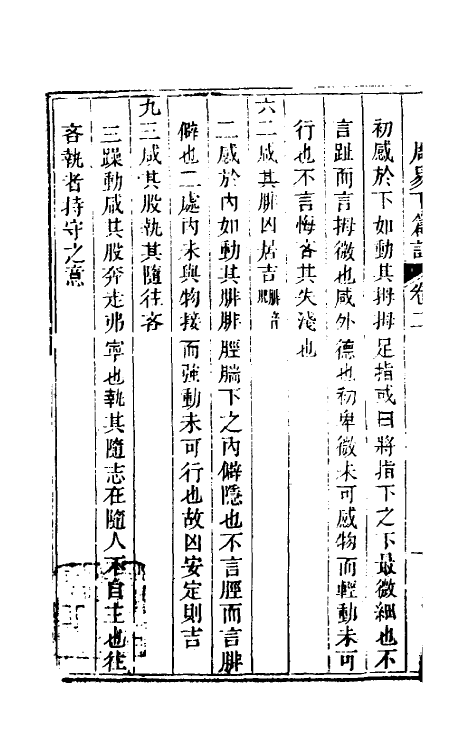 周易下篇註 卷二
初感於下如動其拇拇足指或曰將指下之下最微細也不
言趾而言拇微也咸外德也初卑微未可感物而輕動未可
行也不言悔吝其失淺也
六二咸其腓凶居吉腓音肥
二感於內如動其腓腓脛腨下之內僻隱也不言脛而言腓
僻也二處內未與物接而強動未可行也故凶安定則吉
九三咸其股執其隨往吝
三躁動咸其股奔走弗寧也執其隨志在隨人不自主也往
吝執者持守之意